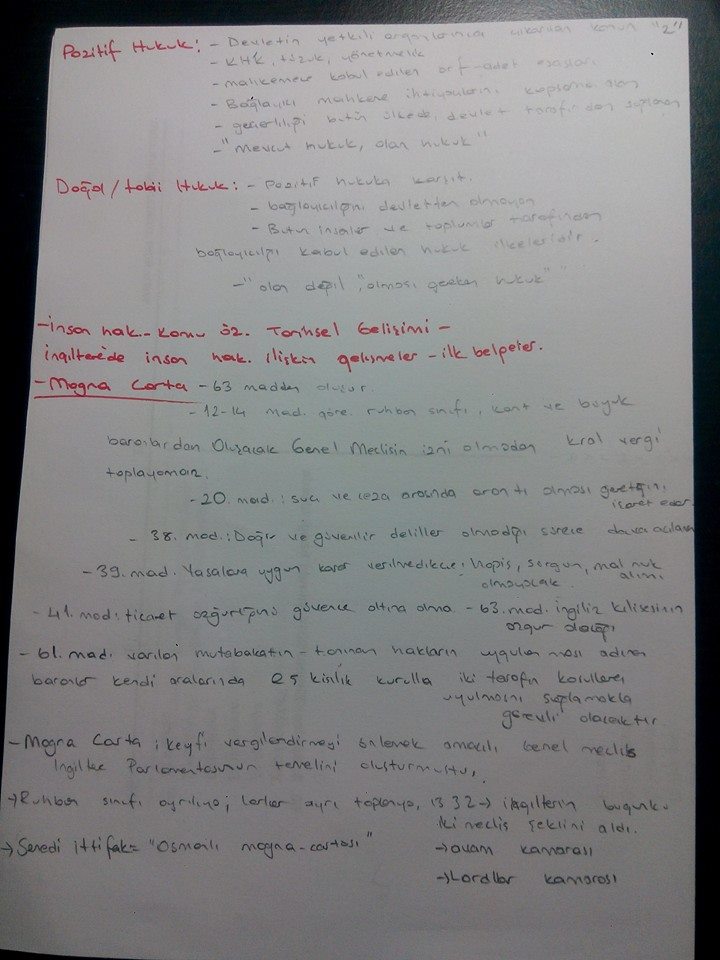 Pozitif Hukuk: - Devletin yetkili organlarınca çıkarılan kanun "2"
- KHK, tüzük, yönetmelik
- mahkemece kabul edilen örf-adet esasları
- Bağlayıcı mahkeme ihtiyaçlarını kapsama alan
- geçerliliği bütün ülkede, devlet tarafından sağlanan
- "Mevcut hukuk, olan hukuk"
Doğal / tabii Hukuk: - Pozitif hukuka karşıt.
- bağlayıcılığını devletten almayan
- Bütün insanlar ve toplumlar tarafından
bağlayıcılığı kabul edilen hukuk ilkeleridir.
- "olan değil, "olması gereken hukuk""
- İnsan hak. - Kamu öz. Tarihsel Gelişimi -
İngiltere'de insan hak. ilişkin gelişmeler - ilk belgeler.
- Magna Carta - 63 madden oluşur.
- 12-14 mad. göre. ruhban sınıfı, kont ve büyük
baronlardan Oluşacak Genel Meclisin izni olmadan kral vergi
toplayamaz.
- 20. mad.: suç ve ceza arasında orantı olması gerektiğini
işaret eder
- 38. mad.: Doğru ve güvenilir deliller olmadığı sürece dava açılam
- 39. mad. Yasalara uygun karar verilmedikçe; Hapis, sürgün, mal mülk
olmayacak. alımı
- 41. mad: ticaret özgürlüğünü güvence altına alma - 63. mad. ingiliz kilisesinin
özgür olacağı
- 61. mad: varılan mutabakatın - tanınan hakların uygulanması adına
baronlar kendi aralarında 25 kişilik kurulla iki tarafın koşullara
uyulmasını sağlamakla
görevli olacaktır
- Magna Carta; keyfi vergilendirmeyi önlemek amaçlı Genel meclis
İngiltere Parlamentosunun temelini oluşturmuştu.
→ Ruhban sınıfı ayrılıyo; lordlar ayrı toplanıyo, 1332 → ingilterin bugünkü
iki meclis şeklini aldı.
→ Senedi ittifak = "Osmanlı magna-cartası" → avam kamarası
→ Lordlar kamarası